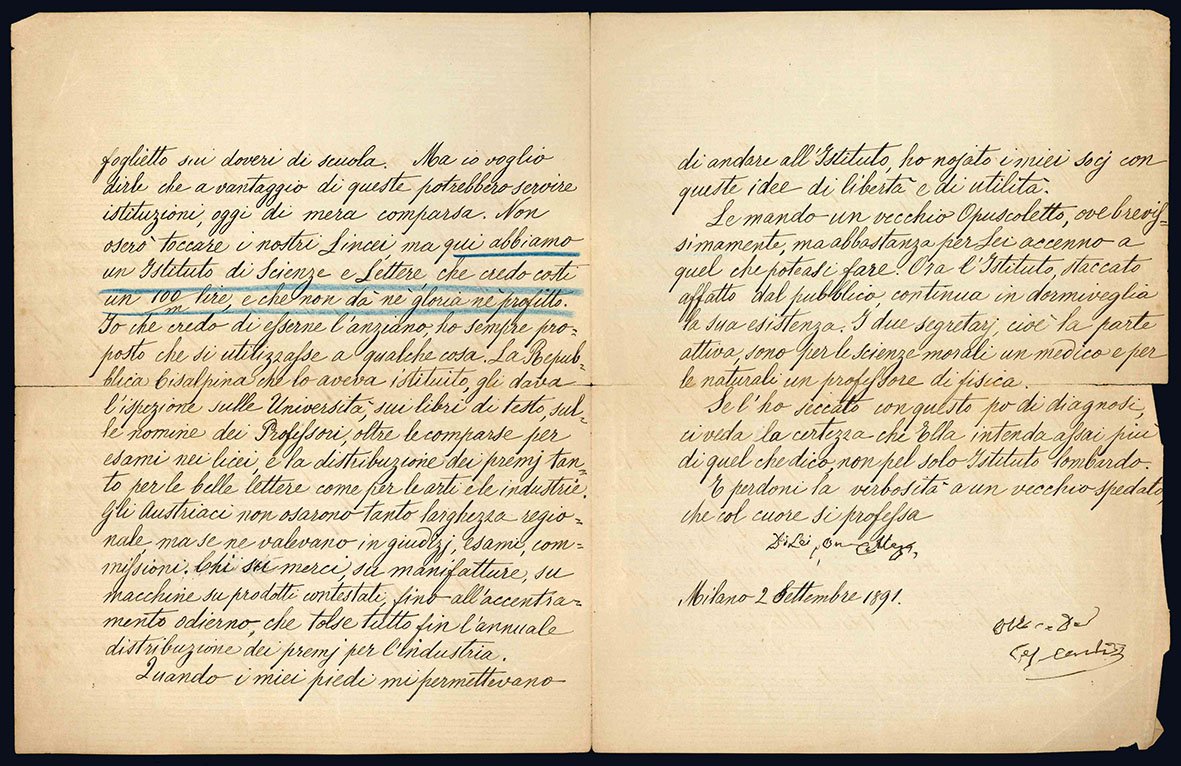 foglietto sui doveri di scuola. Ma io voglio
dirle che a vantaggio di queste potrebbero servire
istituzioni, oggi di mera comparsa. Non
oserò toccare i nostri Lincei ma qui abbiamo
un Istituto di Scienze e Lettere che credo costi
un 100/m lire, e che non dà nè gloria nè profitto.
Io che credo di esserne l'anziano, ho sempre pro=
posto che si utilizzasse a qualche cosa. La Repub=
blica Cisalpina che lo aveva istituito, gli dava
l'ispezione sulle Università, sui libri di testo, sul=
le nomine dei Professori, oltre le comparse per
esami nei licei, e la distribuzione dei premj tan=
to per le belle lettere come per le arti e le industrie.
Gli Austriaci non osarono tanto larghezza regio=
nale ma se ne valevano in giudizj, esami, com=
missioni. Chi su merci, su manifatture, su
macchine su prodotti contestati, fino all'accentra=
mento odierno, che tolse tutto fin l'annuale
distribuzione dei premj per l'Industria.
Quando i miei piedi mi permettevano
di andare all'Istituto, ho nojato i miei socj con
queste idee di libertà e di utilità.
Le mando un vecchio Opuscoletto, ove brevis=
simamente, ma abbastanza per Lei accenno a
quel che poteasi fare. Ora l'Istituto, staccato
affatto dal pubblico continua in dormiveglia
la sua esistenza. I due segretarj, cioè la parte
attiva, sono per le scienze morali un medico e per
le naturali un professore di fisica.
Se l'ho seccato con questo po di diagnosi,
ci veda la certezza che Ella intenda assai più
di quel che dico, non pel solo Istituto lombardo.
E perdoni la verbosità a un vecchio spedato,
che col cuore si professa
Di Lei,
Milano 2 Settembre 1891.